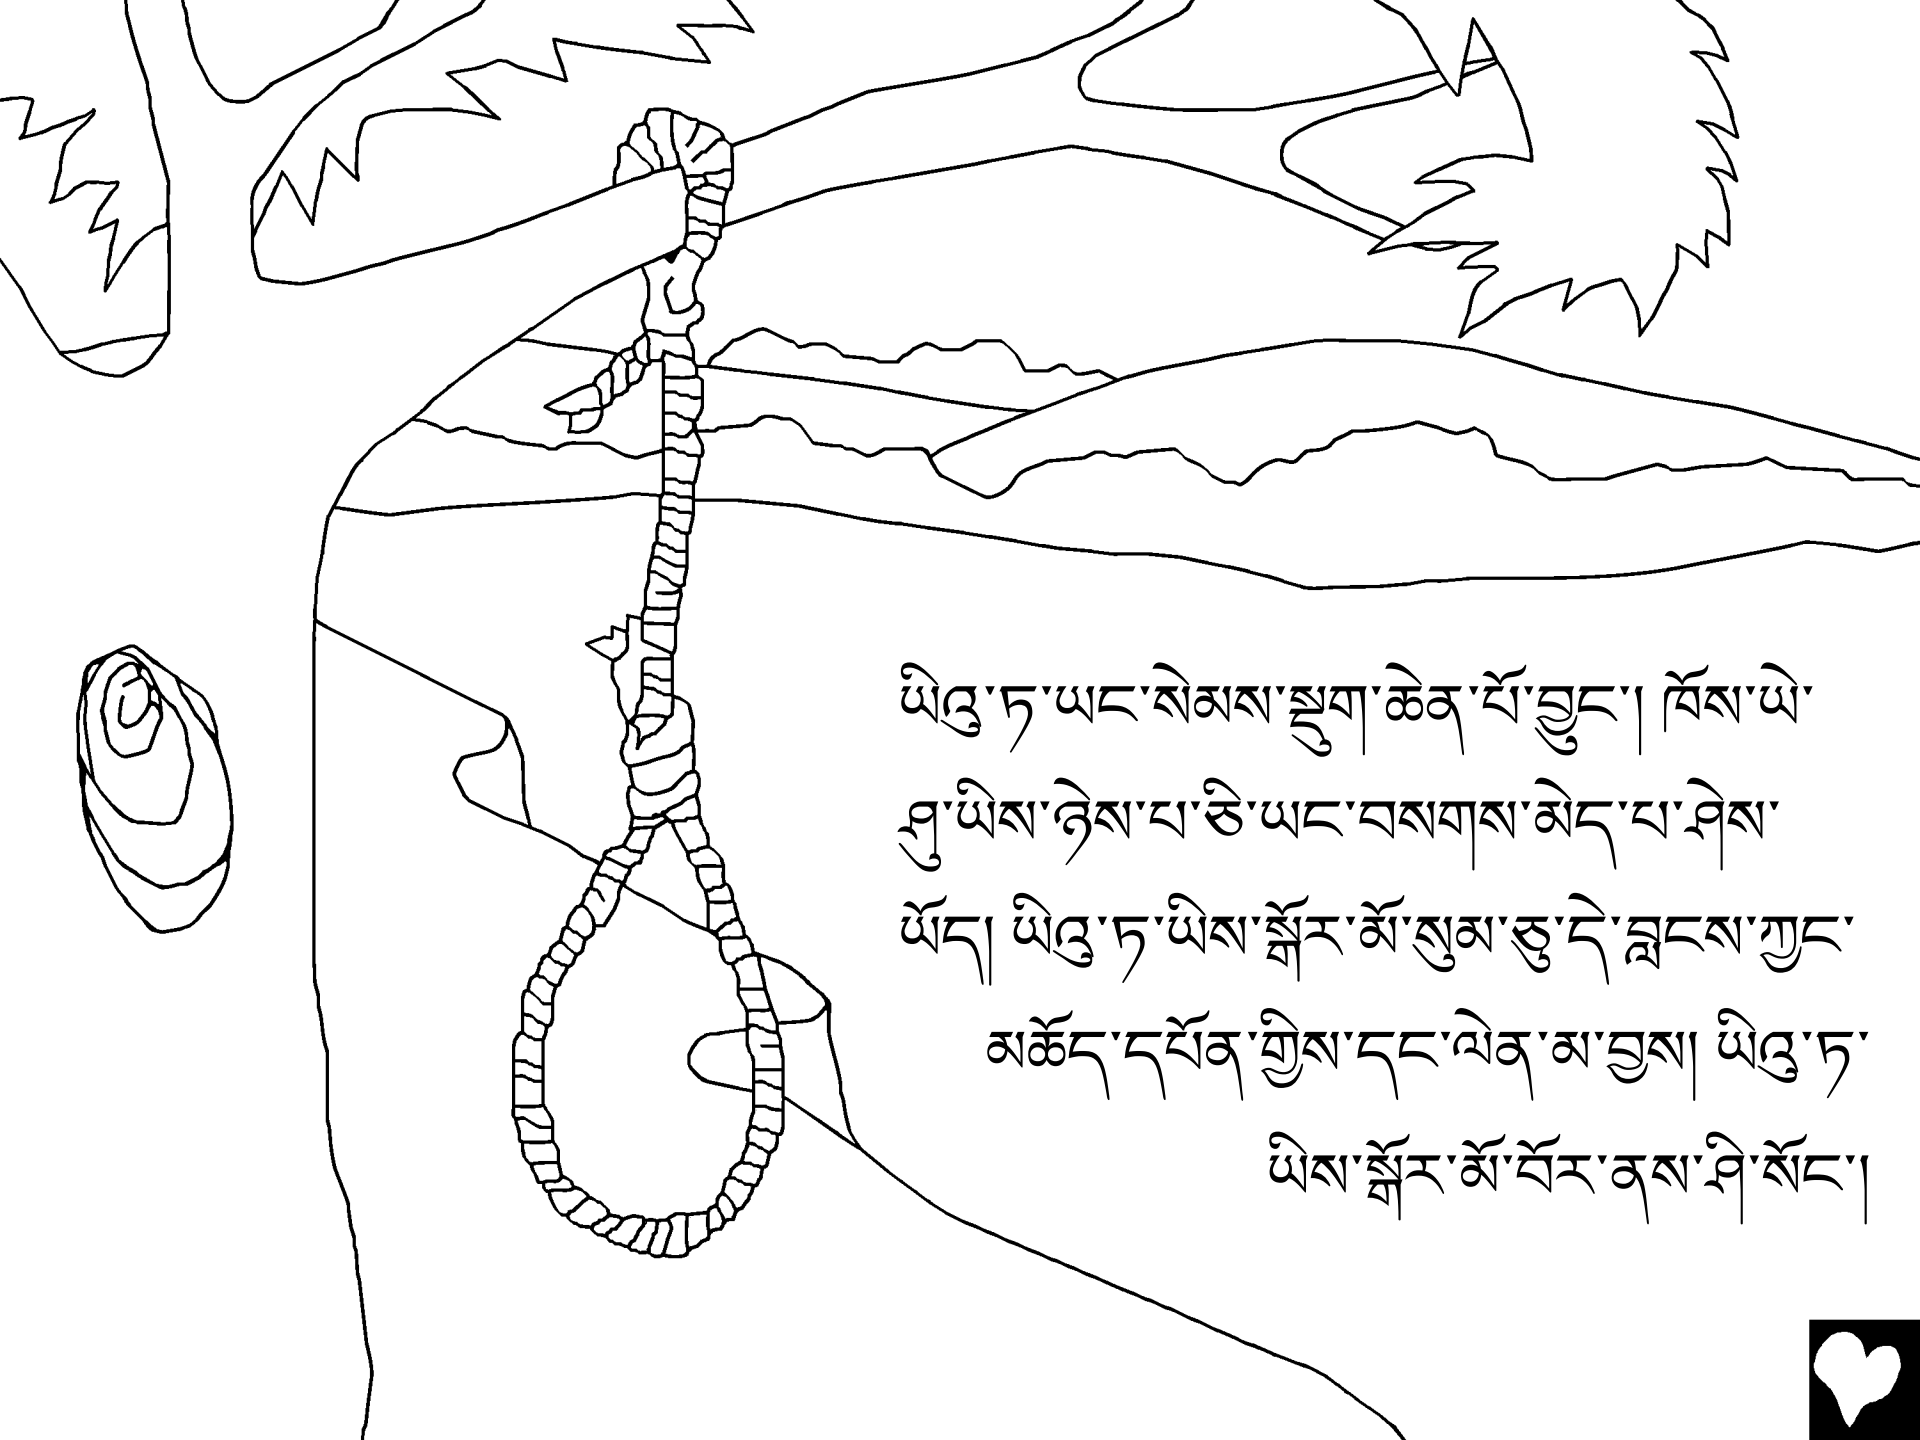 ཡིའུ་ཏ་ཡང་སེམས་སྡུག་ཆེན་པོ་བྱུང་། ཁོས་ཡེ་
ཤུ་ཡིས་ཉེས་པ་ཅི་ཡང་བསགས་མེད་པ་ཤེས་
ཡོད། ཡིའུ་ཏ་ཡིས་སྒོར་མོ་སུམ་ཅུ་དེ་བླངས་ཀྱང་
མཆོད་དཔོན་གྱིས་དང་ལེན་མ་བྱས། ཡིའུ་ཏ་
ཡིས་སྒོར་མོ་བོར་ནས་ཤི་སོང་།